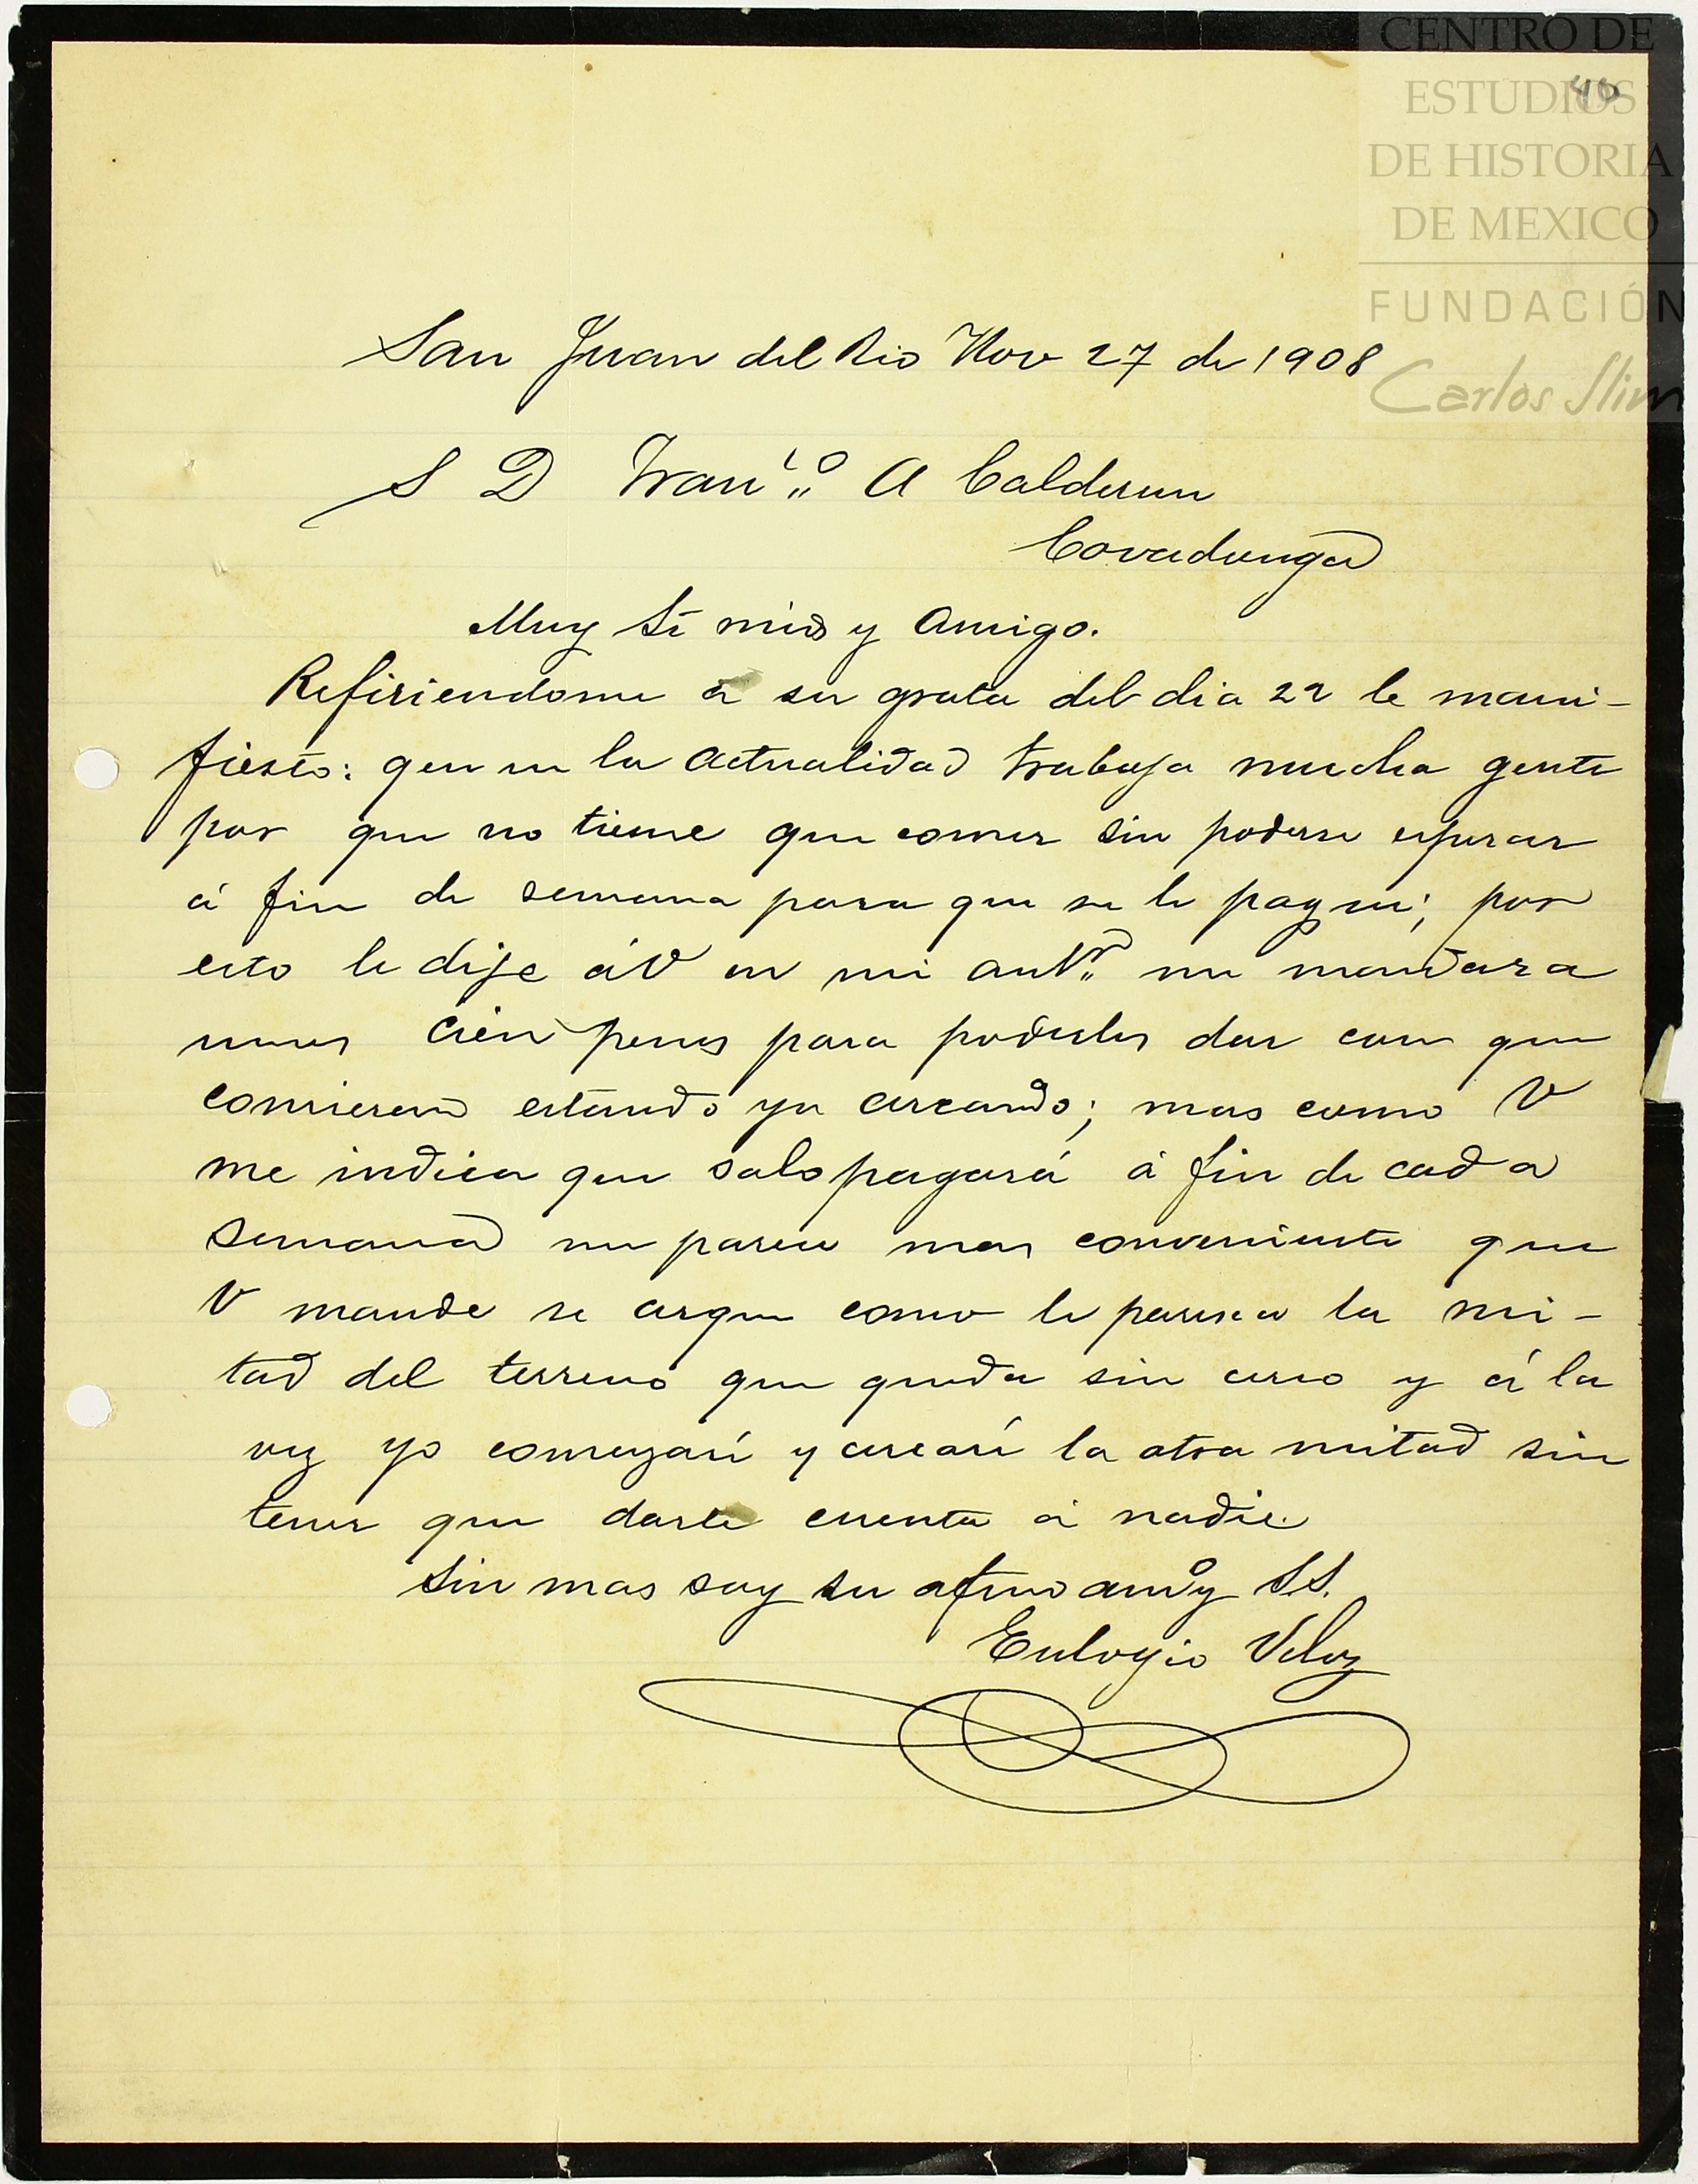 CENTRO DE
ESTUDIOS
DE HISTORIA
DE MEXICO
FUNDACIÓN
Carlos Slim
46
San Juan del Rio Nov 27 de 1908
S D Franco A Calderon
Covadonga
Muy Sr mio y Amigo.
Refiriendome á su grata del dia 22 le mani-
fiesto: que en la actualidad trabaja mucha gente
por que no tiene que comer sin poderse esperar
á fin de semana para que se le pague; por
esto le dije á V en mi antr me mandara
unos cien pesos para poderles dar con que
comieran estando ya cercando; mas como V
me indica que solo pagará á fin de cada
semana me parece mas conveniente que
V mande se cerque como le paresca la mi-
tad del terreno que queda sin cerco y á la
vez yo comenzaré y cercaré la otra mitad sin
tener que darle cuenta á nadie.
Sin mas soy su afmo amo y S.S.
Eulogio Veloz